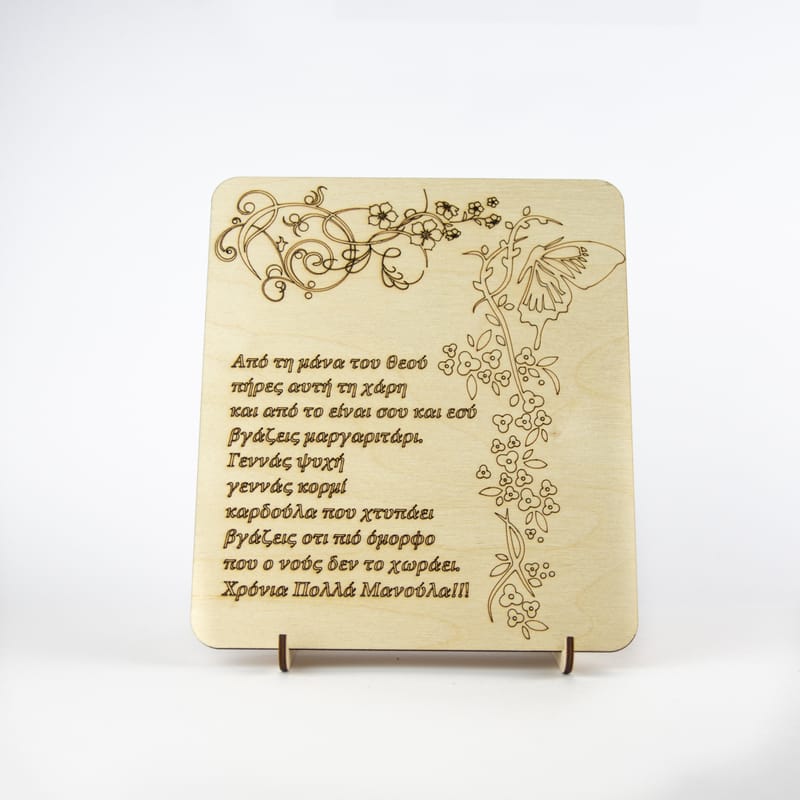 Από τη μάνα του θεού
πήρες αυτή τη χάρη
και από το είναι σου και εσύ
βγάζεις μαργαριτάρι.
Γεννάς ψυχή
γεννάς κορμί
καρδούλα που χτυπάει
βγάζεις οτι πιό όμορφο
που ο νούς δεν το χωράει.
Χρόνια Πολλά Μανούλα!!!